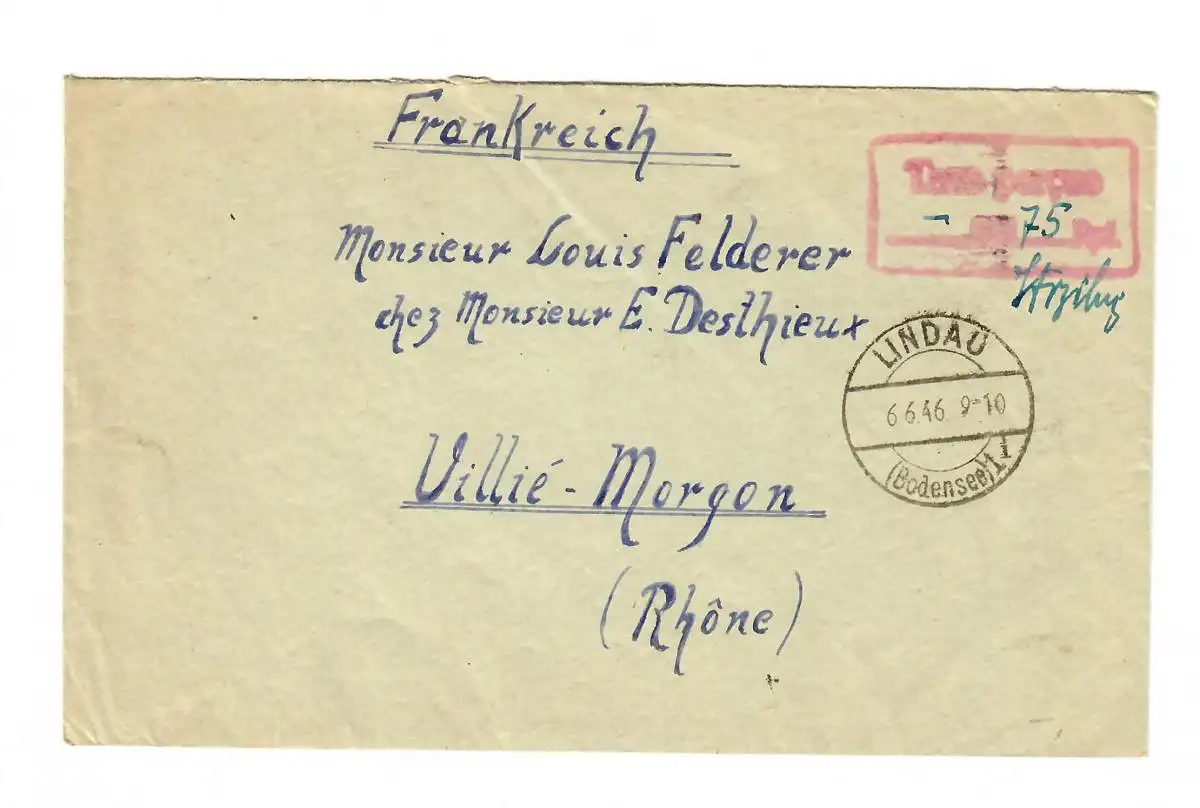 Frankreich
Taxe perçue
- 75 Rpf.
Monsieur Louis Felderer
chez Monsieur E. Desthieux
LINDAU
6.6.46. 9-10
(Bodensee) 1 i
Villié-Morgon
(Rhône)